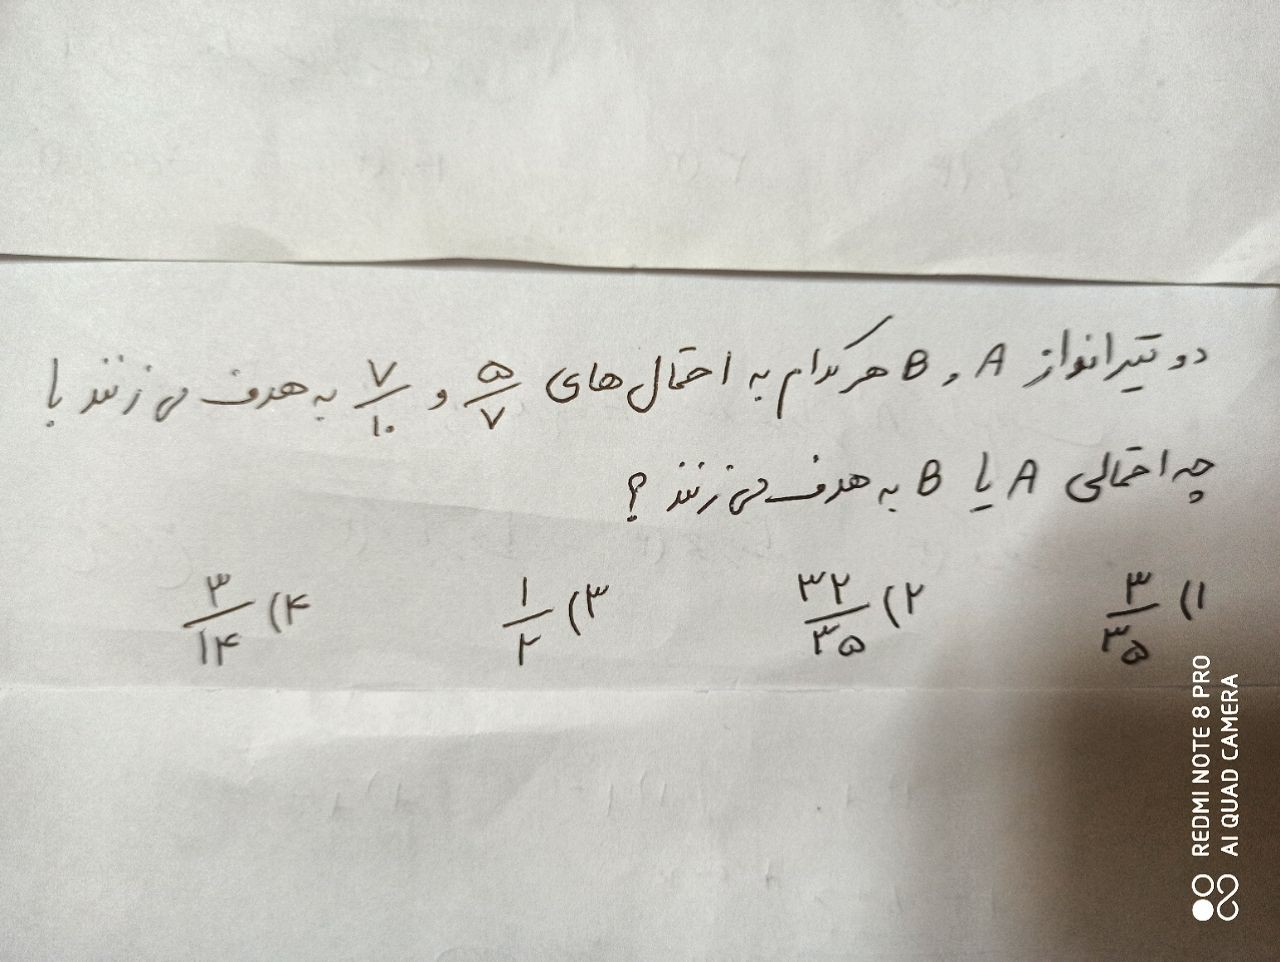 دو تیرانداز A و B هر کدام به احتمال های ۵/۷ و ۷/۱۰ به هدف می زنند با
چه احتمالی A یا B به هدف می زنند ؟
۱) ۳/۳۵ ۲) ۳۲/۳۵ ۳) ۱/۲ ۴) ۳/۱۴
REDMI NOTE 8 PRO
AI QUAD CAMERA